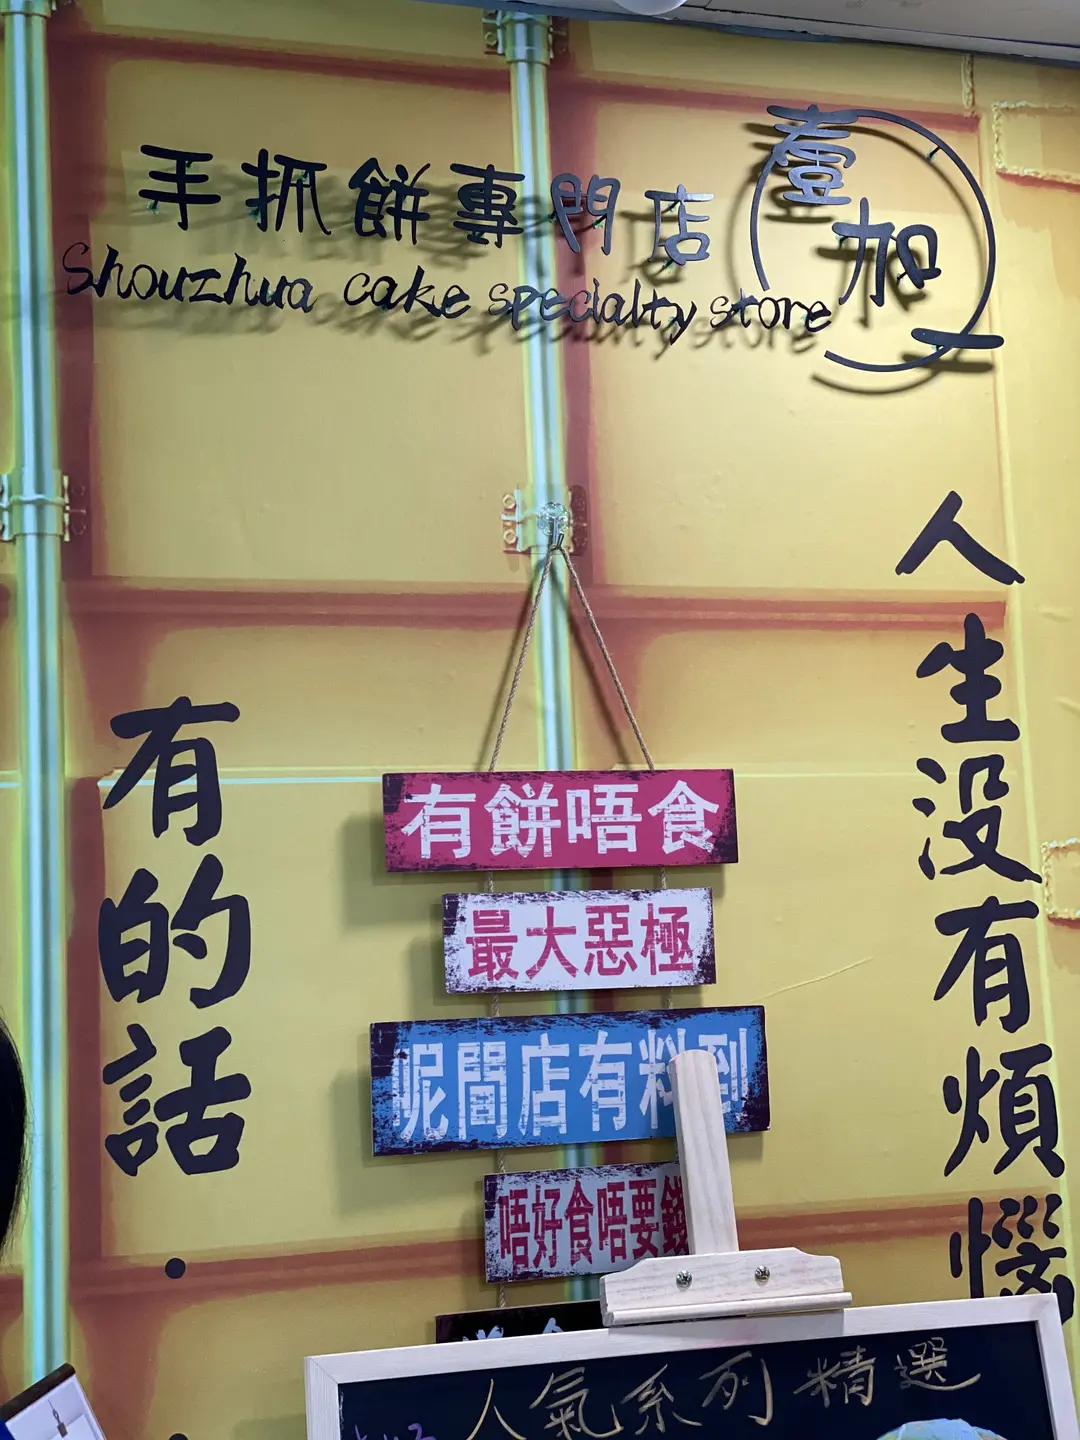 手抓餅專門店
Shouzhua cake specialty store
壹加一
人生沒有煩惱
有的話
有餅唔食
最大惡極
呢間店有料到
唔好食唔要錢
人氣系列精選